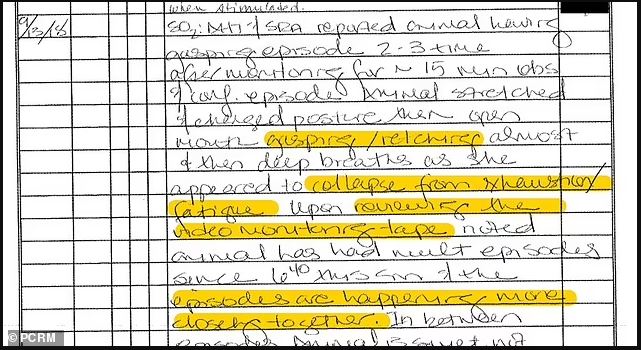 when stimulated.
9/13/18 SO2: AHT / SRA reported animal having
gasping episode 2-3 time
after monitoring for ~ 15 min obs
& conf. episode Animal stretched
& changed posture then open
mouth gasping/retching almost
& then deep breaths as she
appeared to collapse from exhaustion/
fatigue Upon reviewing the
video monitoring tape noted
animal has had mult episodes
since 6 40 this am & the
episodes are happening more
closely together. In between
episodes Animal is quiet not
© PCRM